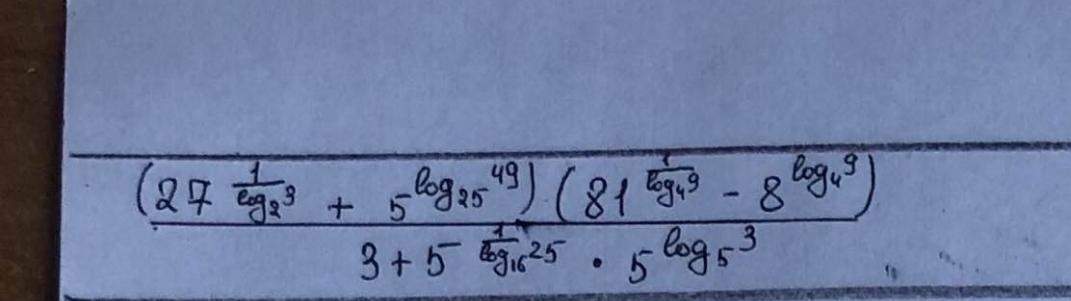 (27^{\frac{1}{\log_2 3}} + 5^{\log_{25} 49}) (81^{\frac{1}{\log_4 9}} - 8^{\log_4 9})
3 + 5^{\frac{1}{\log_{16} 25}} \cdot 5^{\log_5 3}